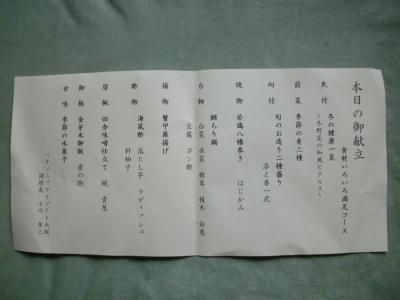 本日の御献立
食材いろいろ満足コース
先付 冬の健康一菜
~冬野菜の和風ピクルス~
前菜 季節の肴三種
向付 旬のお造り二種盛り
添え妻一式
焼物 若鶏八幡巻き はじかみ
台物 鱈ちり鍋
白菜 水菜 椎茸 榎木 白葱
豆腐 ポン酢
揚物 蟹甲羅揚げ
酢物 海鼠酢 落とし芋 ラディッシュ
針柚子
留椀 田舎味噌仕立て 蜆 青葱
御飯 金芽米御飯 香の物
甘味 季節の水菓子
パナソニックリゾート大阪
調理長 小川